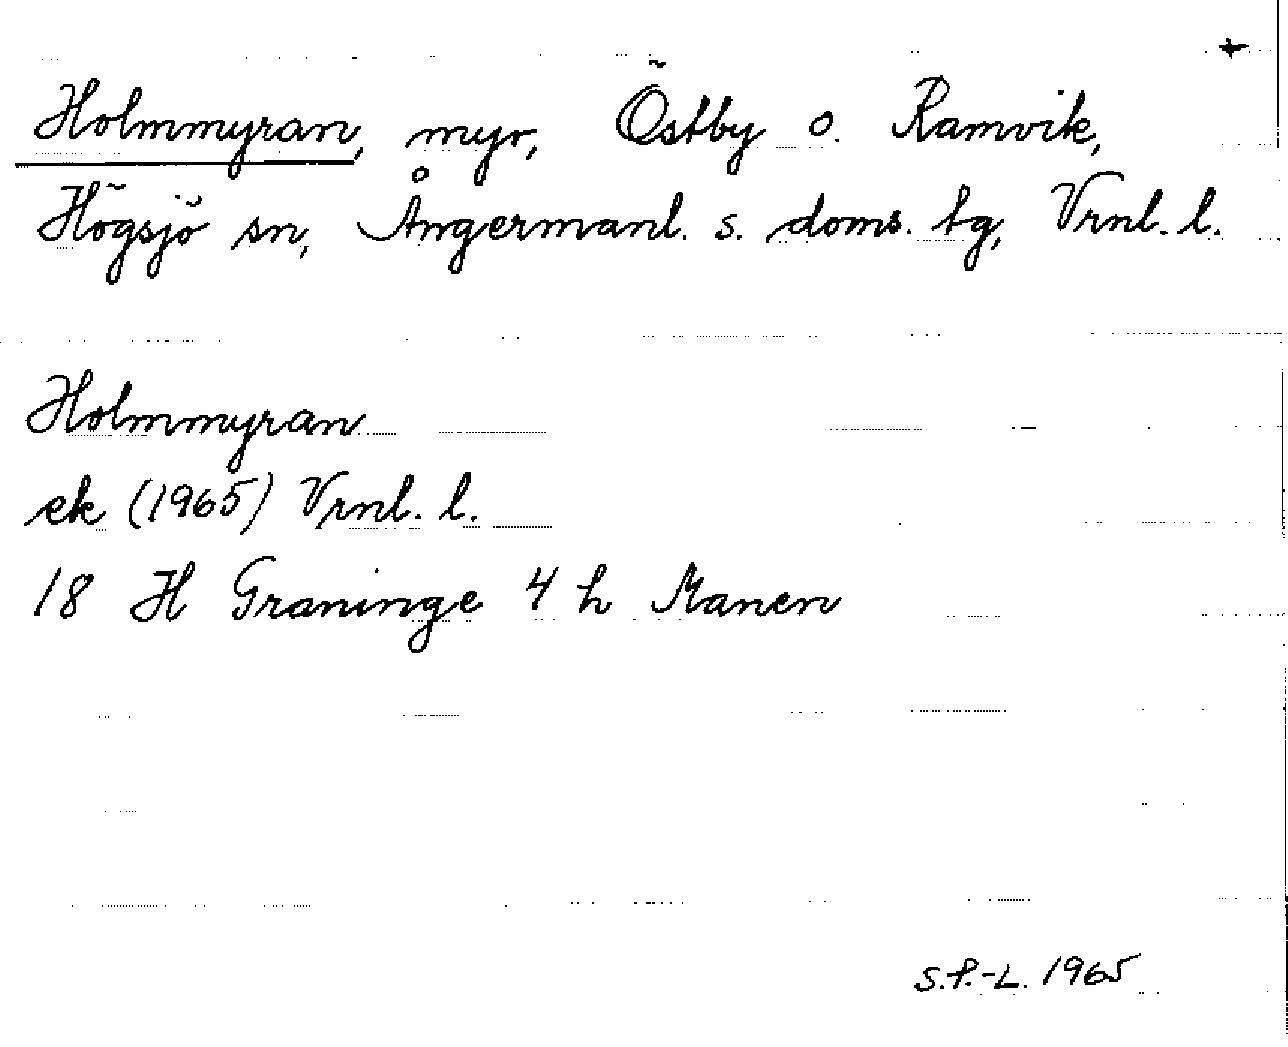 +
Holmmyran, myr, Östby o. Ramvik,
Högsjö sn, Ångermanl. s. doms. tg, Vrnl. l.
Holmmyran
ek (1965) Vrnl. l.
18 H Graninge 4 h Manen
S.P.-L. 1965